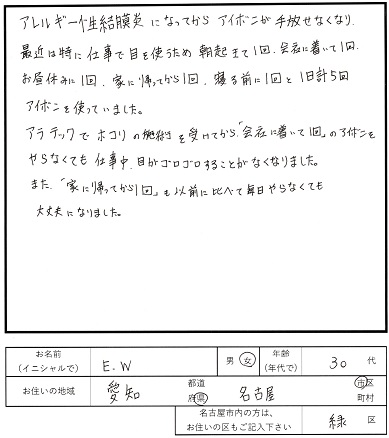 アレルギー性結膜炎になってからアイボンが手放せなくなり、
最近は特に仕事で目を使うため朝起きて1回、会社に着いて1回、
お昼休みに1回、家に帰ってから1回、寝る前に1回と1日計5回
アイボンを使っていました。
アラテックでホコリの施術を受けてから、「会社に着いて1回」のアイボンを
やらなくても仕事中、目がゴロゴロすることがなくなりました。
また、「家に帰ってから1回」も以前に比べて毎日やらなくても
大丈夫になりました。
お名前
(イニシャルで) E.W 男 女 年齢
(年代で) 30 代
お住いの地域 愛知 都道
府県 名古屋 市区
町村
名古屋市内の方は、
お住いの区もご記入下さい 緑 区